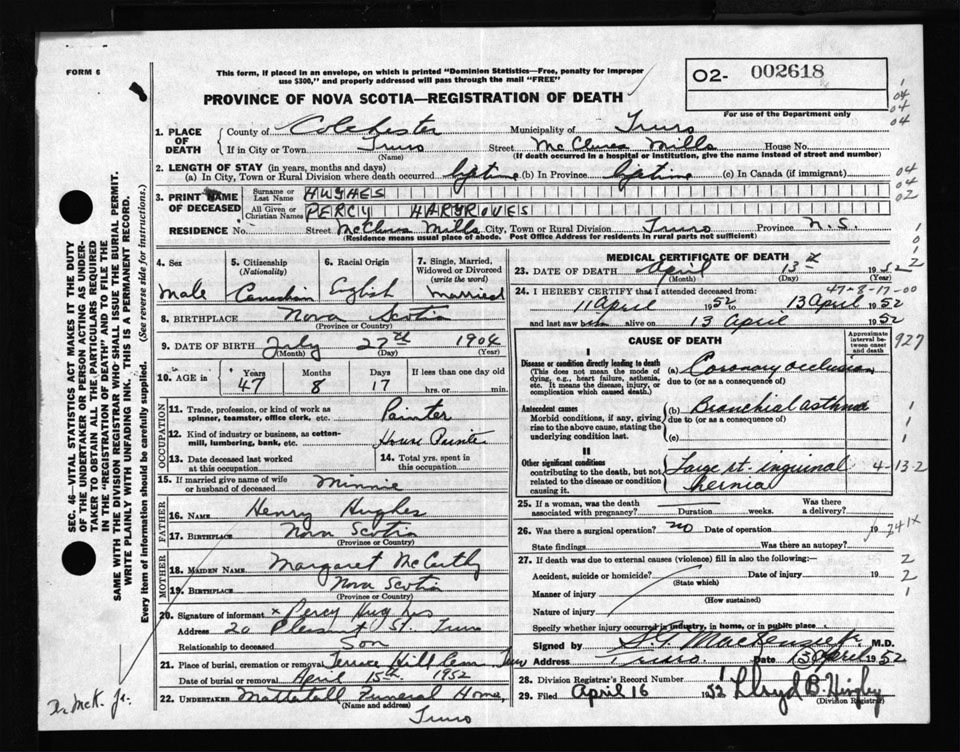 FORM 6
This form, if placed in an envelope, on which is printed "Dominion Statistics—Free, penalty for improper
use $300," and properly addressed will pass through the mail "FREE"
O2- 002618
PROVINCE OF NOVA SCOTIA—REGISTRATION OF DEATH
For use of the Department only
04
04
04
1. PLACE OF DEATH { County of Colchester Municipality of Truro
If in City or Town Truro (Name) Street McClures Mills House No.
(If death occurred in a hospital or institution, give the name instead of street and number)
2. LENGTH OF STAY (in years, months and days)
(a) In City, Town or Rural Division where death occurred lifetime (b) In Province lifetime (c) In Canada (if immigrant)
04
04
02
3. PRINT NAME OF DECEASED { Surname or Last Name HUGHES
All Given or Christian Names PERCY HARGROVES
RESIDENCE No. Street McClures Mills City, Town or Rural Division Truro Province N.S.
(Residence means usual place of abode. Post Office Address for residents in rural parts not sufficient)
4. Sex Male
5. Citizenship (Nationality) Canadian
6. Racial Origin English
7. Single, Married, Widowed or Divorced (write the word) married
8. BIRTHPLACE Nova Scotia
(Province or Country)
9. DATE OF BIRTH July 27th 1904
(Month) (Day) (Year)
10. AGE in { Years 47 Months 8 Days 17 If less than one day old
hrs. or min.
OCCUPATION
11. Trade, profession, or kind of work as spinner, teamster, office clerk, etc. Painter
12. Kind of industry or business, as cotton-mill, lumbering, bank, etc. House Painter
13. Date deceased last worked at this occupation
14. Total yrs. spent in this occupation
15. If married give name of wife or husband of deceased Minnie
FATHER
16. NAME Henry Hughes
17. BIRTHPLACE Nova Scotia
(Province or Country)
MOTHER
18. MAIDEN NAME Margaret McCarthy
19. BIRTHPLACE Nova Scotia
(Province or Country)
20. Signature of informant x Percy Hughes
Address 20 Pleasant St. Truro
Relationship to deceased Son
21. Place of burial, cremation or removal Terrace Hill Cem. Truro
Date of burial or removal April 15th, 1952
22. UNDERTAKER Mattatall Funeral Home,
(Name and address)
Truro
MEDICAL CERTIFICATE OF DEATH
23. DATE OF DEATH April 13th 1952
(Month) (Day)
24. I HEREBY CERTIFY that I attended deceased from 47-8-17-00
11 April 1952 to 13 April 1952
and last saw him alive on 13 April 1952
CAUSE OF DEATH
Approximate interval between onset and death
927
I
Disease or condition directly leading to death
(This does not mean the mode of dying, e.g., heart failure, asthenia, etc. It means the disease, injury, or complication which caused death.)
(a) Coronary occlusion
due to (or as a consequence of)
Antecedent causes
Morbid conditions, if any, giving rise to the above cause, stating the underlying condition last.
(b) Bronchial asthma
due to (or as a consequence of)
(c)
II
Other significant conditions
contributing to the death, but not related to the disease or condition causing it.
Large rt. inguinal hernia
4-13-2
25. If a woman, was the death associated with pregnancy? Duration weeks. Was there a delivery?
26. Was there a surgical operation? no Date of operation 19
241x
State findings Was there an autopsy?
27. If death was due to external causes (violence) fill in also the following:—
Accident, suicide or homicide? Date of injury 19
(State which)
Manner of injury
(How sustained)
Nature of injury
Specify whether injury occurred in industry, in home, or in public place
Signed by S. G. MacKenzie Jr. M.D.
Address Truro. Date 15 April 1952
28. Division Registrar's Record Number
29. Filed April 16 1952 Lloyd B. Hingley
(Division Registrar)
SEC. 46—VITAL STATISTICS ACT MAKES IT THE DUTY
OF THE UNDERTAKER OR PERSON ACTING AS UNDER-
TAKER TO OBTAIN ALL THE PARTICULARS REQUIRED
IN THE "REGISTRATION OF DEATH" AND TO FILE THE
SAME WITH THE DIVISION REGISTRAR WHO SHALL ISSUE THE BURIAL PERMIT.
WRITE PLAINLY WITH UNFADING INK. THIS IS A PERMANENT RECORD.
Every item of information should be carefully supplied. (See reverse side for instructions.)
Dr. McK. Jr.